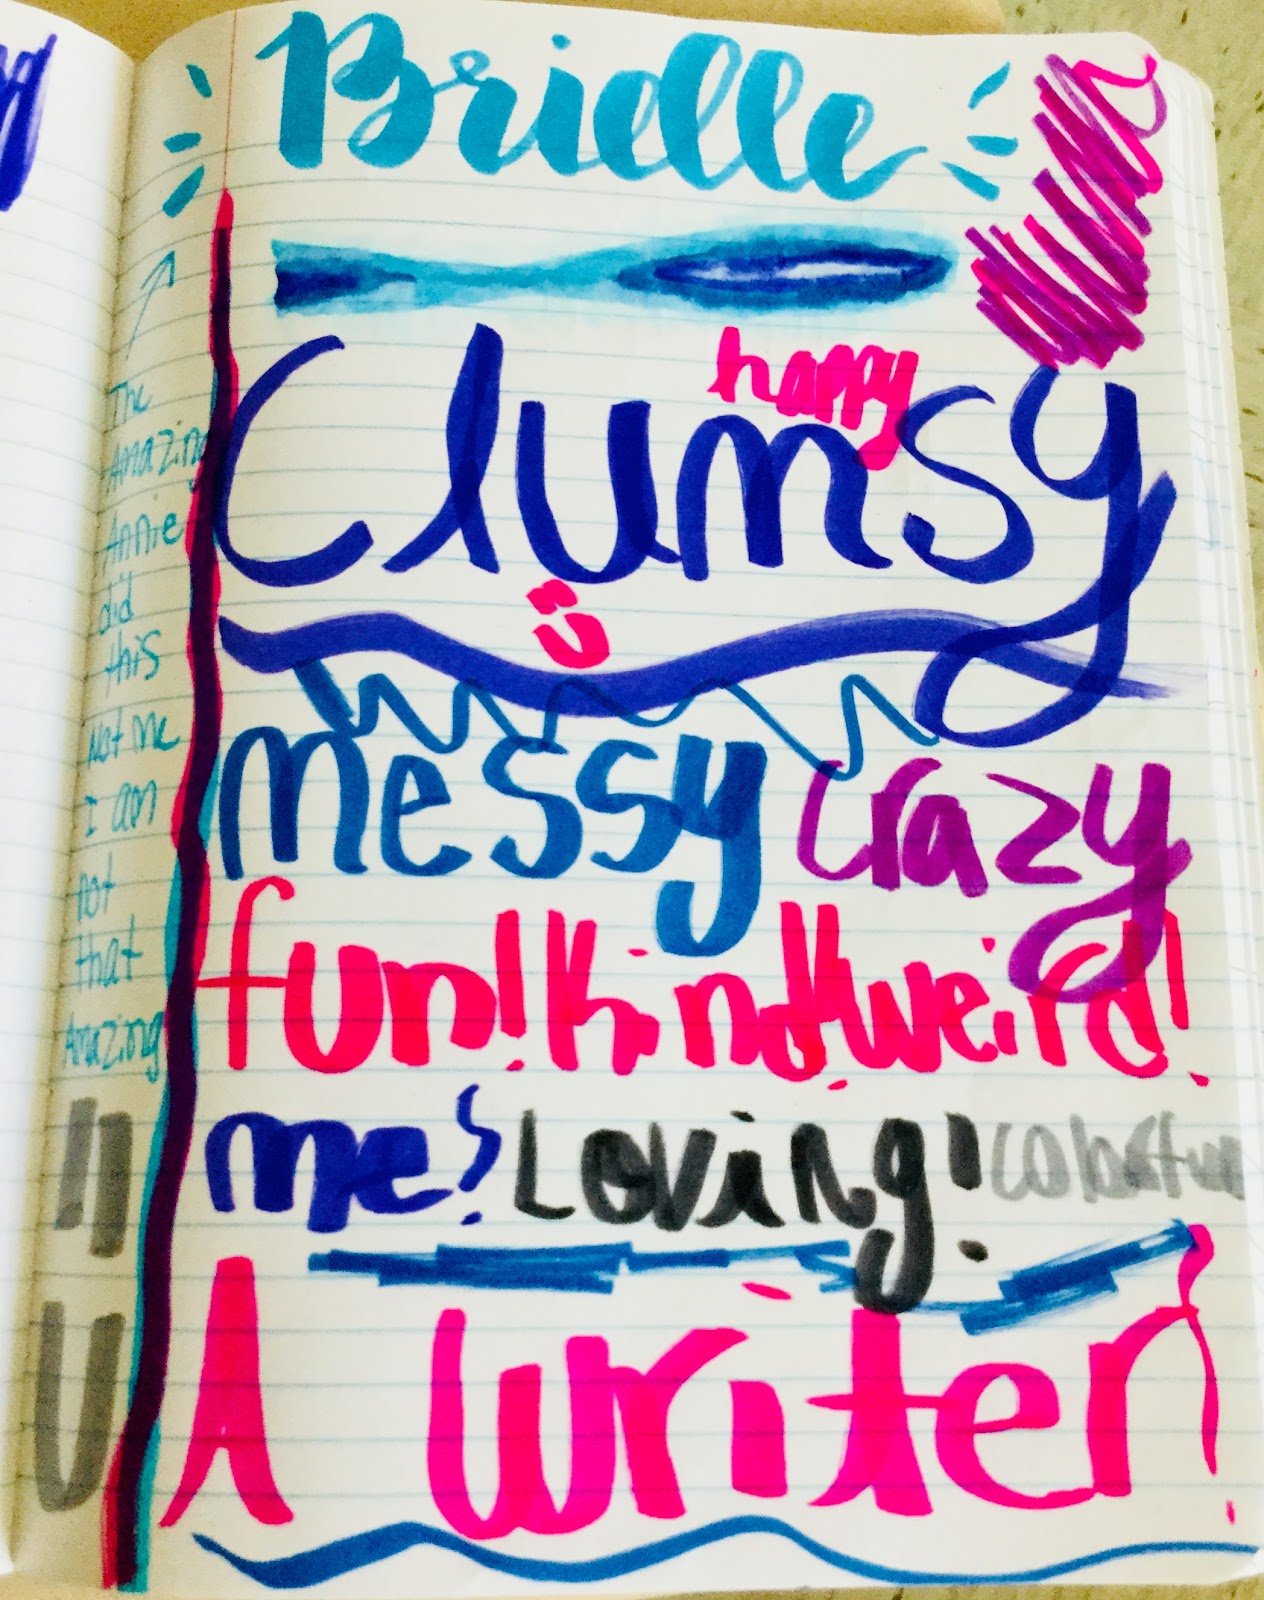 Brielle
happy
Clumsy
messy crazy
fun! Kind! weird!
me! Loving! Colorful
A writer!
The
Amazing
Annie
did
this
Not me
I am
not
that
Amazing